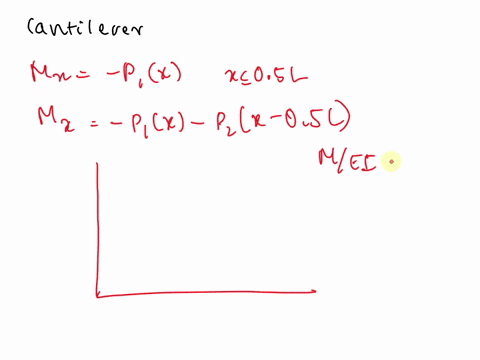 Cantilever
Mx = -P1(x)   x≤0.5L
Mx = -P1(x) - P2(x-0.5L)
M/EI